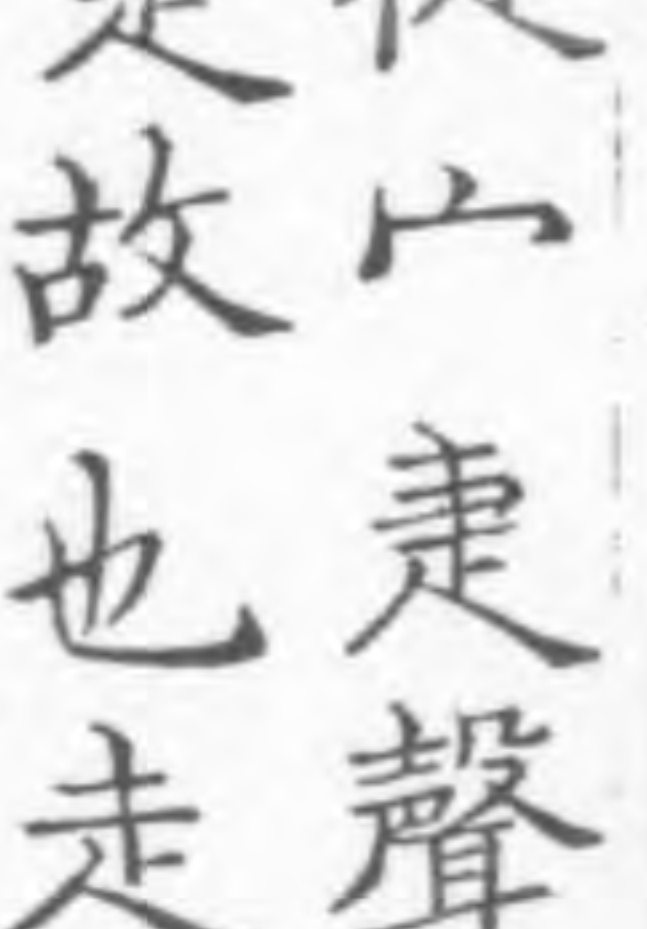 宀疌聲
故也走